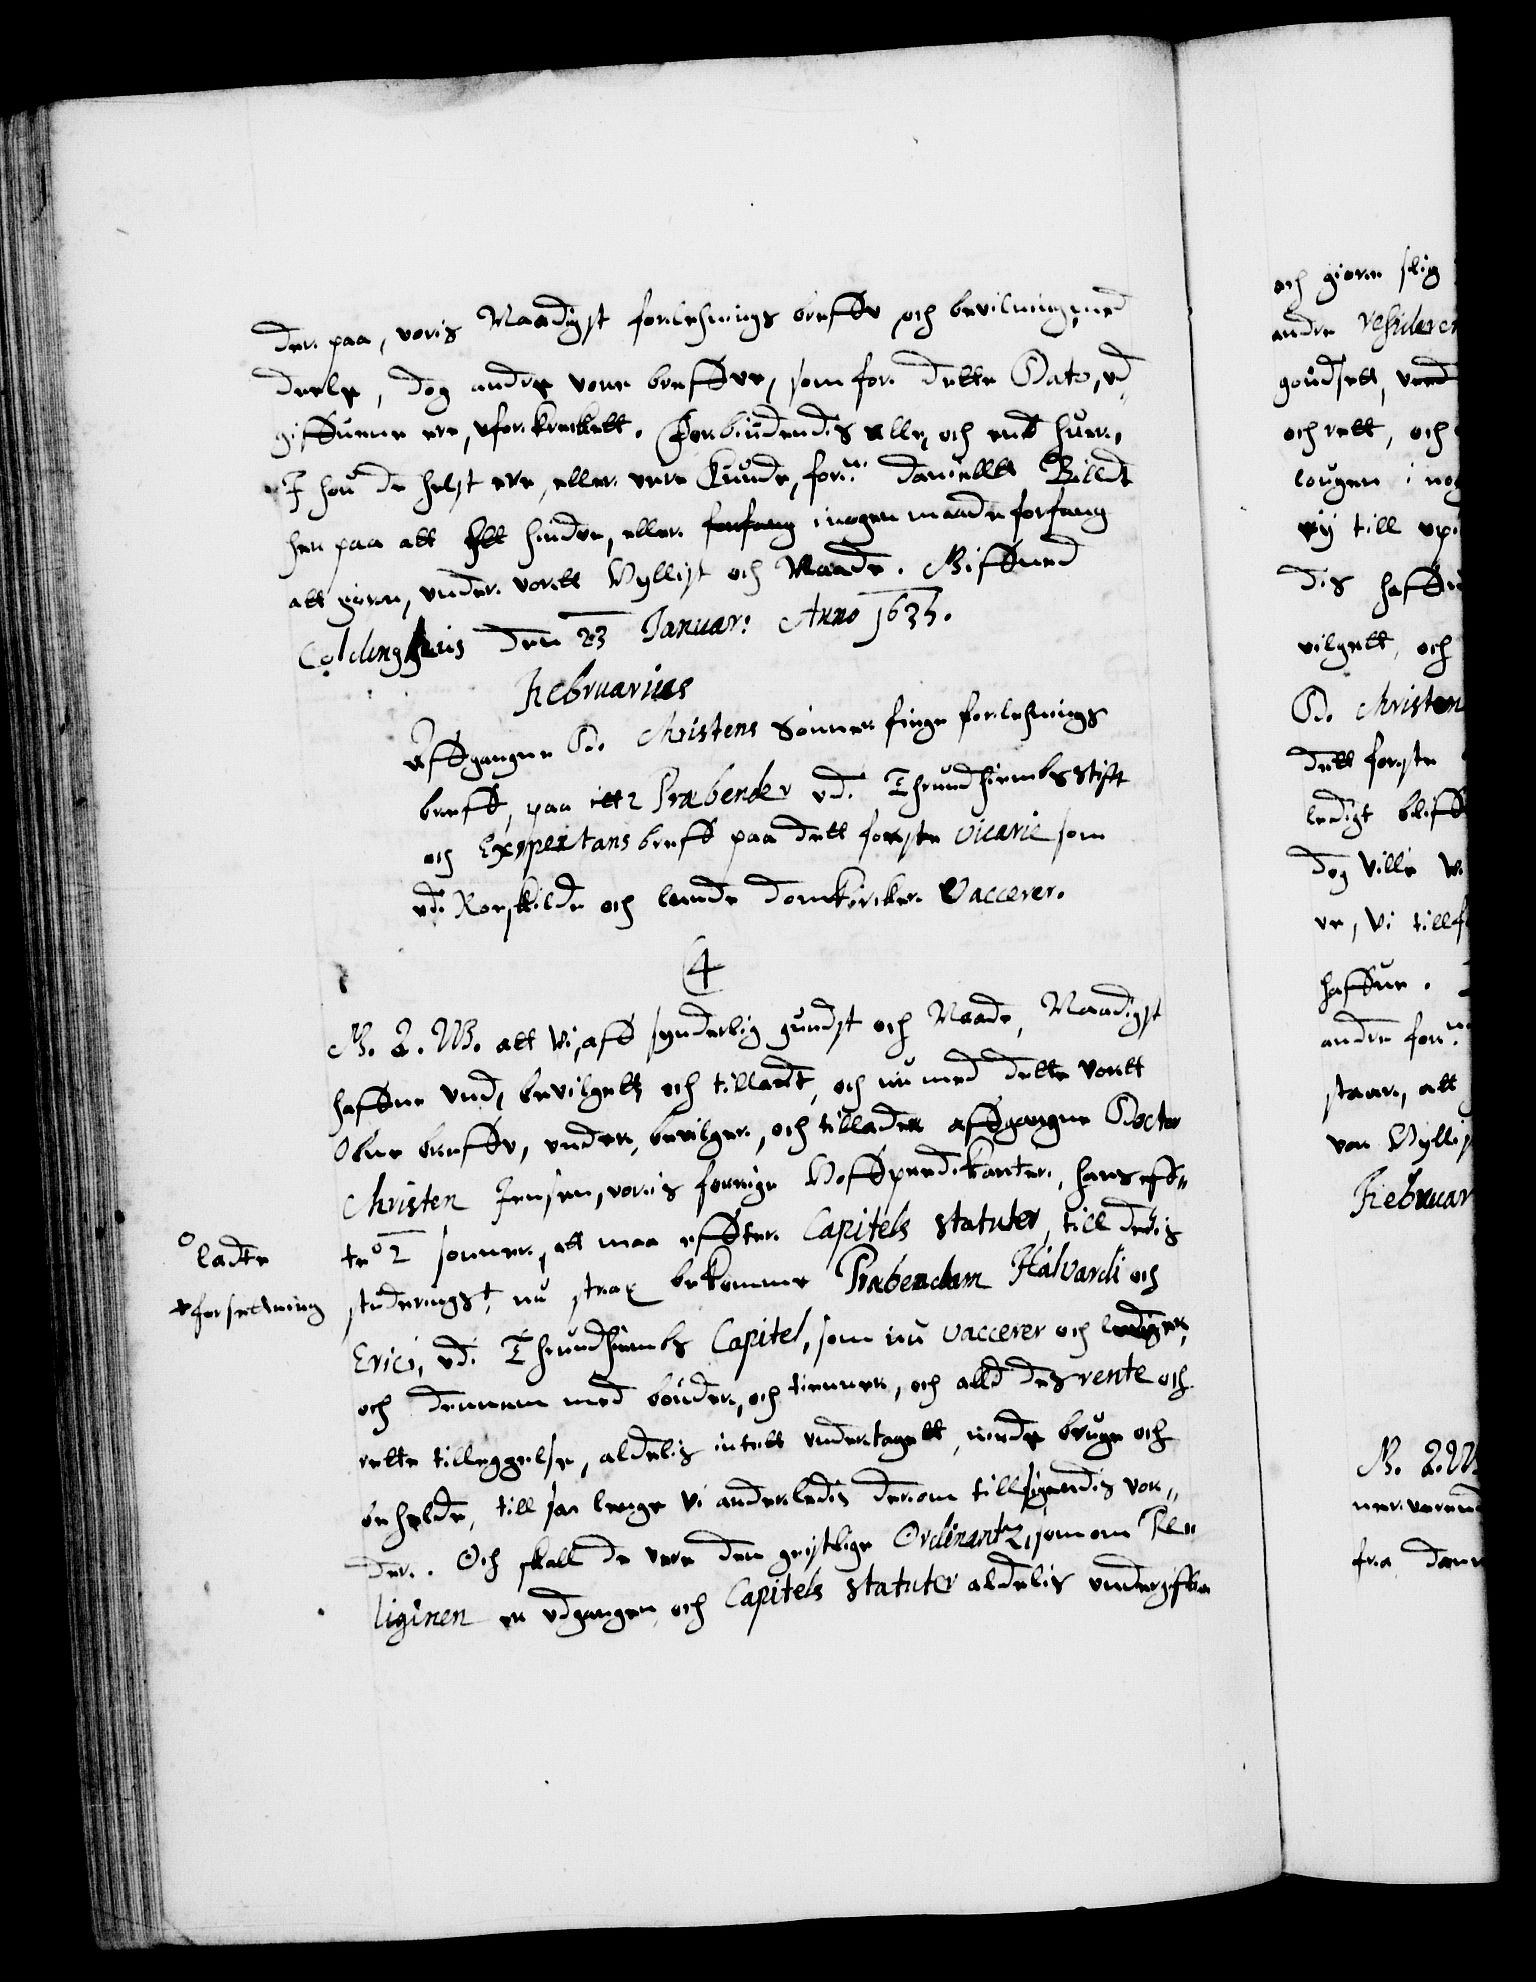 der paa, voris Naadigst forlehnings breffve och bevilning, med
deele, dog andre vore breffve, som for dette Dato, ud
giffuene ere, uforkrencket. Forbiudendis alle, och enhuer,
I huo de helst ere, eller vere kunde, forne: Daniell Billdt
her paa att hindre, eller i nogen maade forfang
att giøre, under vortt Hyllist och Naade. Giffued
Coldinghuus den 23 Januar: Anno 1635.
Februarius
Affgangne D. Christens Sønner finge forlehnings
breff, paa itt Præbender udi Thrundhiembs Stift
och Expextans breff paa dett første Vicarie som
udi Roeskilde och Lunde Domkircker Vaccerer.
4
G. A. W. att Vi, aff synderlig gundst och Naade, Naadigst
haffue undt, bevilgett och tilladt, och nu med dette vortt
obne breffve, under, bevilger, och tillader affgangne Doctor
Christen Jensen, voris forrige Hoffpredikanter, hans eff„
te° 2 sønner, att maa effter Capitels Statuter, till deris
studerings+, nu strax bekomme Præbendam Halvardi och
Erici, udi Thrundhiembs Capitel, som nu vaccerer och ledig er,
och dennem med bønder, och tienner, och alld des rente och
rette tilleggelse, aldelis intett undertagett, niude bruge och
beholde, till saa lenge Vi anderledis derom tillsigendis vor„
der. Och skall de vere den geistlige Ordinantz, som om Re„
liginen er udgangen, och Capitels Statuter aldelis undergiffen
° ladte
+ forsettning
och giøre slig
andre resideren
goudsett, ved
och rett, och
lougen i nog
vij till
dis haffu
vilgett, och
D. Christen
dett første
ledigt bliff
dog Ville Vi
re, Vi till
haffue.
andre forne:
staar, att
vor Hyllis
Februar
G. A. W
fra